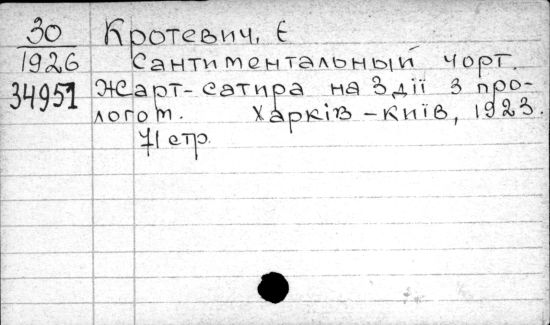 30 Кротевич, Є
1926 Сантиментальный чорт.
34951 Жарт-сатира на 3 дії з про-
логом. Харків - Київ, 1923.
71 стр.